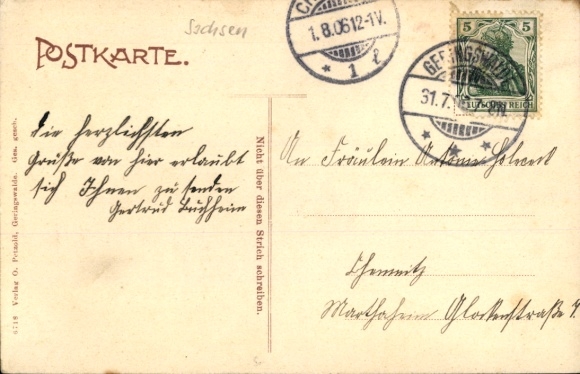 Sachsen
POSTKARTE.
1.8.06 12-1V.
1
GERINGSWALDE
31.7.
5 5
DEUTSCHES REICH
Die herzlichsten
Grüße von hier erlaubt
sich Ihnen zu senden
Gertrud Buchheim
Nicht über diesen Strich schreiben.
6718 Verlag O. Petzold, Geringswalde. Ges. gesch.
An Fräulein Antonie
Chemnitz
Marthaheim Glockenstraße 7.